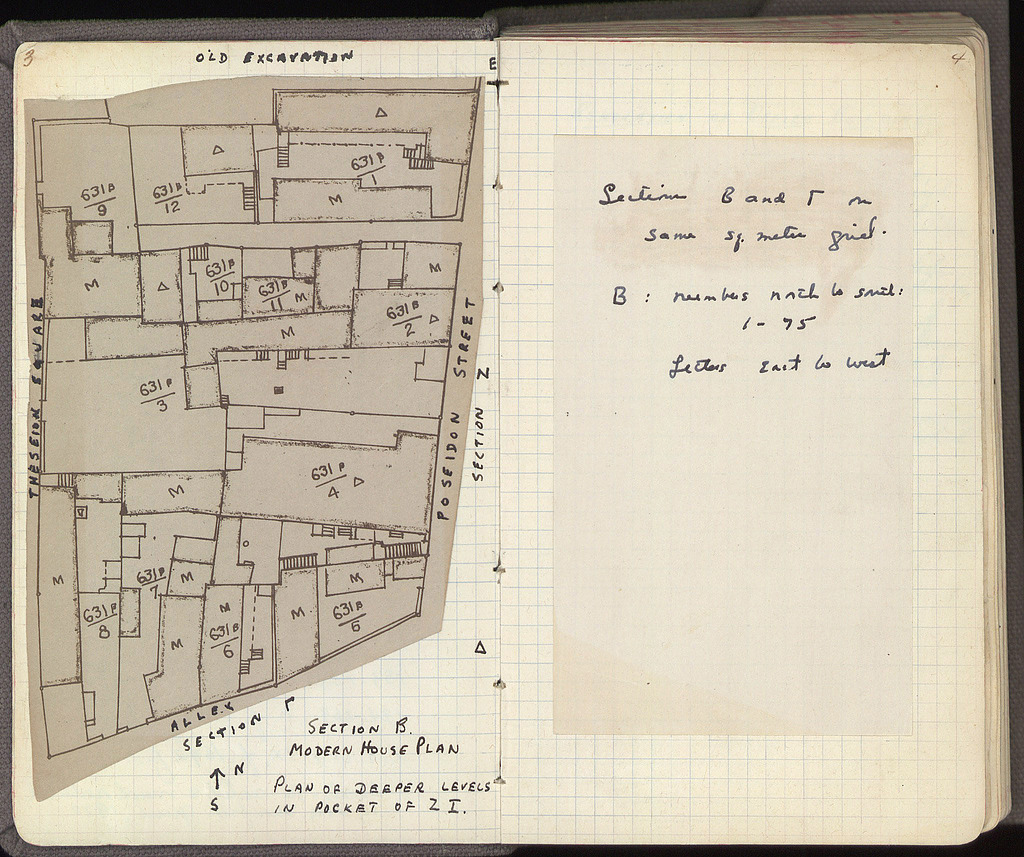 3
OLD EXCAVATION
E
Δ
Δ
631B/1
631B/9
631B/12
M
M
Δ
631B/10
631B/11
M
M
M
631B/2
Δ
THESEION SQUARE
631B/3
POSEIDON STREET
SECTION Z
631B/4
Δ
M
M
631B/7
M
M
M
M
631B/8
M
631B/6
631B/5
Δ
ALLEY
SECTION Γ
SECTION B.
MODERN HOUSE PLAN
N
S
PLAN OF DEEPER LEVELS
IN POCKET OF Z I.
4
Sections B and Γ on
same sq. meter grid.
B: numbers north to south:
1-75
Letters East to West